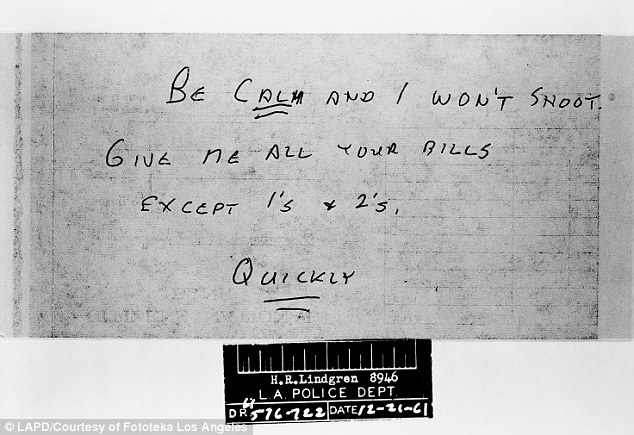 BE CALM AND I WON'T SHOOT.
GIVE ME ALL YOUR BILLS
EXCEPT 1'S & 2'S.
QUICKLY
H.R.Lindgren 8946
L.A. POLICE DEPT.
DR 61 596722 DATE 12-21-61
© LAPD/Courtesy of Fototeka Los Angeles